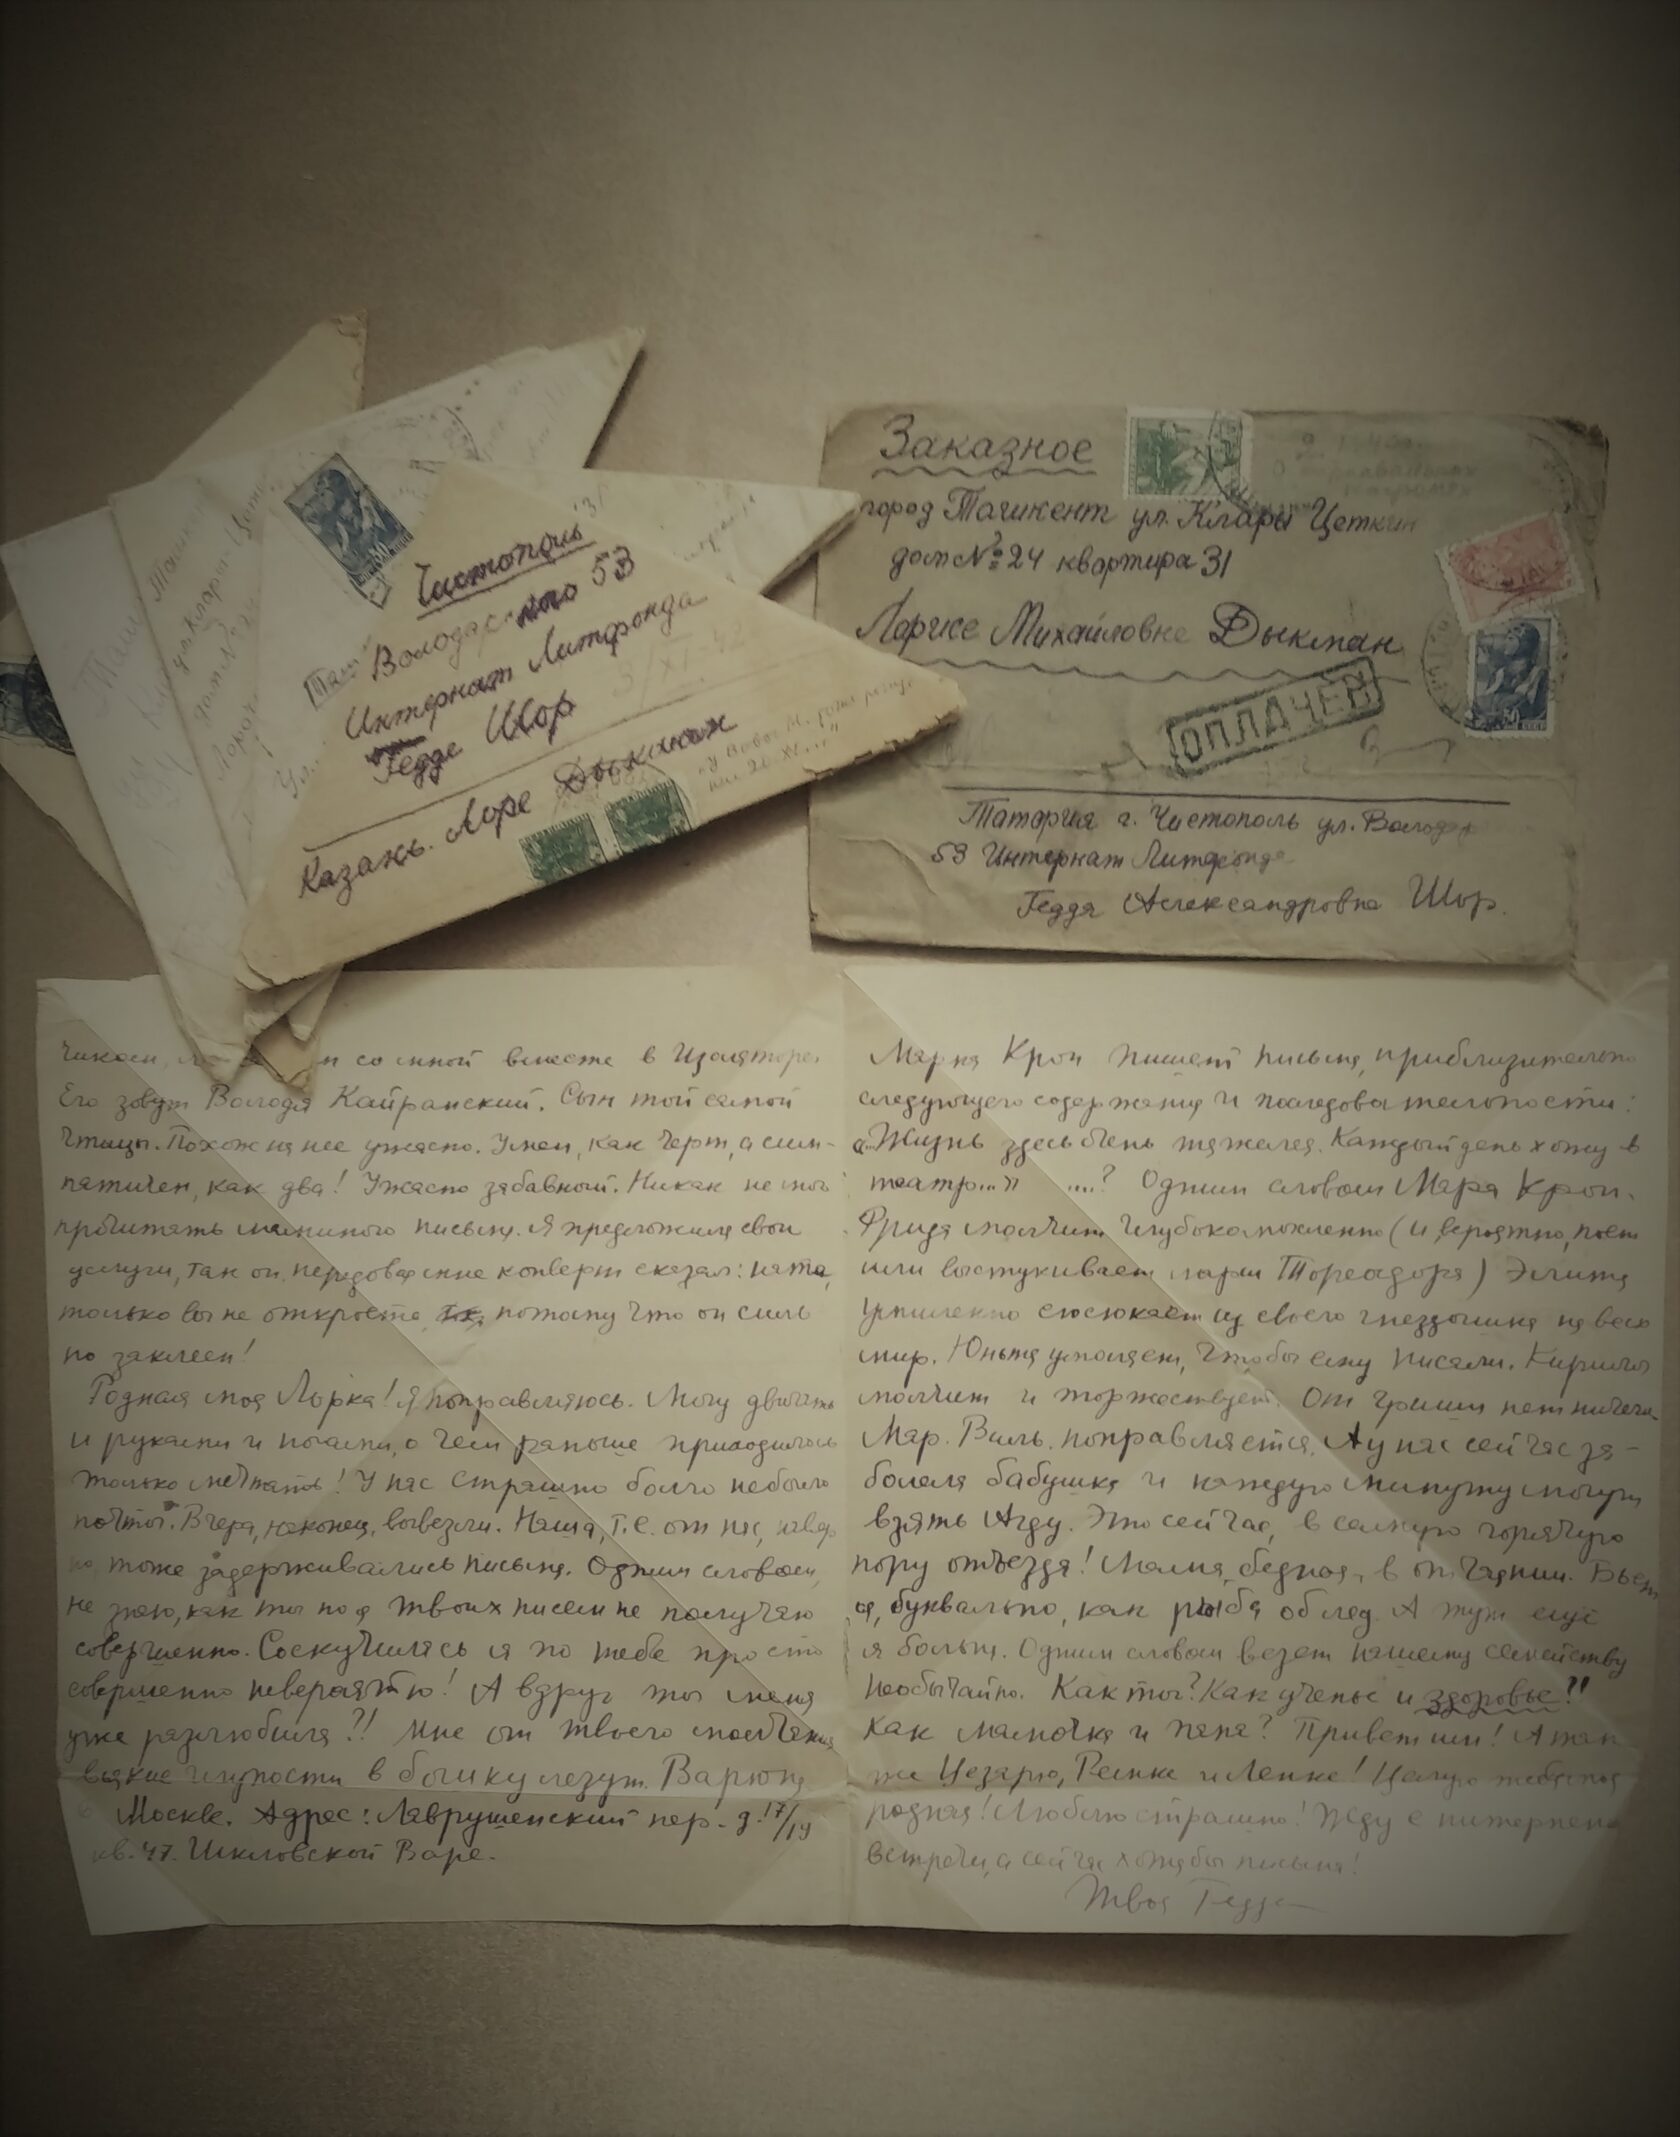 Чистополь
Володарского 53
Интернат Литфонда
Гедде Шор
Казань. Лоре Дыкман
Заказное
город Ташкент ул. Клары Цеткин
дом № 24 квартира 31
Лорисе Михайловне Дыкман
ОПЛАЧЕН
Татария г. Чистополь ул. Володар
53 Интернат Литфонда
Гедда Александровна Шор.
со мной вместе в Изоляторе.
Его зовут Володя Кайранский. Сын той самой
птицы. Похож на нее ужасно. Умен, как черт, а сим-
патичен, как два! Ужасно забавный. Никак не мог
прочитать маминого письма. Я предложила свои
услуги, так он, передовая мне конверт сказал: ната,
только вы не откроете, потому что он силь
но заклеен!
Родная моя Лорка! Я поправляюсь. Могу двигать
и руками и ногами, о чем раньше приходилось
только мечтать! У нас страшно долго не было
почты. Вчера, наконец, вывезли. Наша, т.е. от нас, навер
но тоже задерживались письма. Одним словом,
не знаю, как ты но я твоих писем не получаю
совершенно. Соскучилась я по тебе просто
совершенно невероятно! А вдруг ты меня
уже разлюбила?! Мне от твоего молчания
всякие глупости в башку лезут. Варюха
в Москве. Адрес: Лаврушенский пер. д. 17/19
кв. 47. Шкловской Варе.
Марка Крон пишет письма, приблизительно
следующего содержания и последовательности:
«...Жизнь здесь очень тяжелая. Каждый день хожу в
театр...» ....? Одним словом Мара Крон.
Фрида молчит глубокомысленно (и, вероятно, поет
или выстукивает марш Тореадора) Элита
умиленно сюсюкает из своего гнездышка на весь
мир. Юнька умоляет, чтобы ему писали. Кирилл
молчит и торжествует. От Гриши нет ничего.
Мар. Виль. поправляется. А у нас сейчас за-
болела бабушка и каждую минуту могут
взять Агду. Это сейчас, в самую горячую
пору отъезда! Мама, бедная, в отчаянии. Бьет
ся, буквально, как рыба об лед. А тут еще
я больна. Одним словом везет нашему семейству
необычайно. Как ты? Как ученье и здоровье?!
Как мамочка и папа? Привет им! А так
же Цезарю, Ремке и Ленке! Целую тебя моя
родная! Люблю страшно! Жду с нитерпен
встречи, а сейчас хотя бы письма!
Твоя Гедда